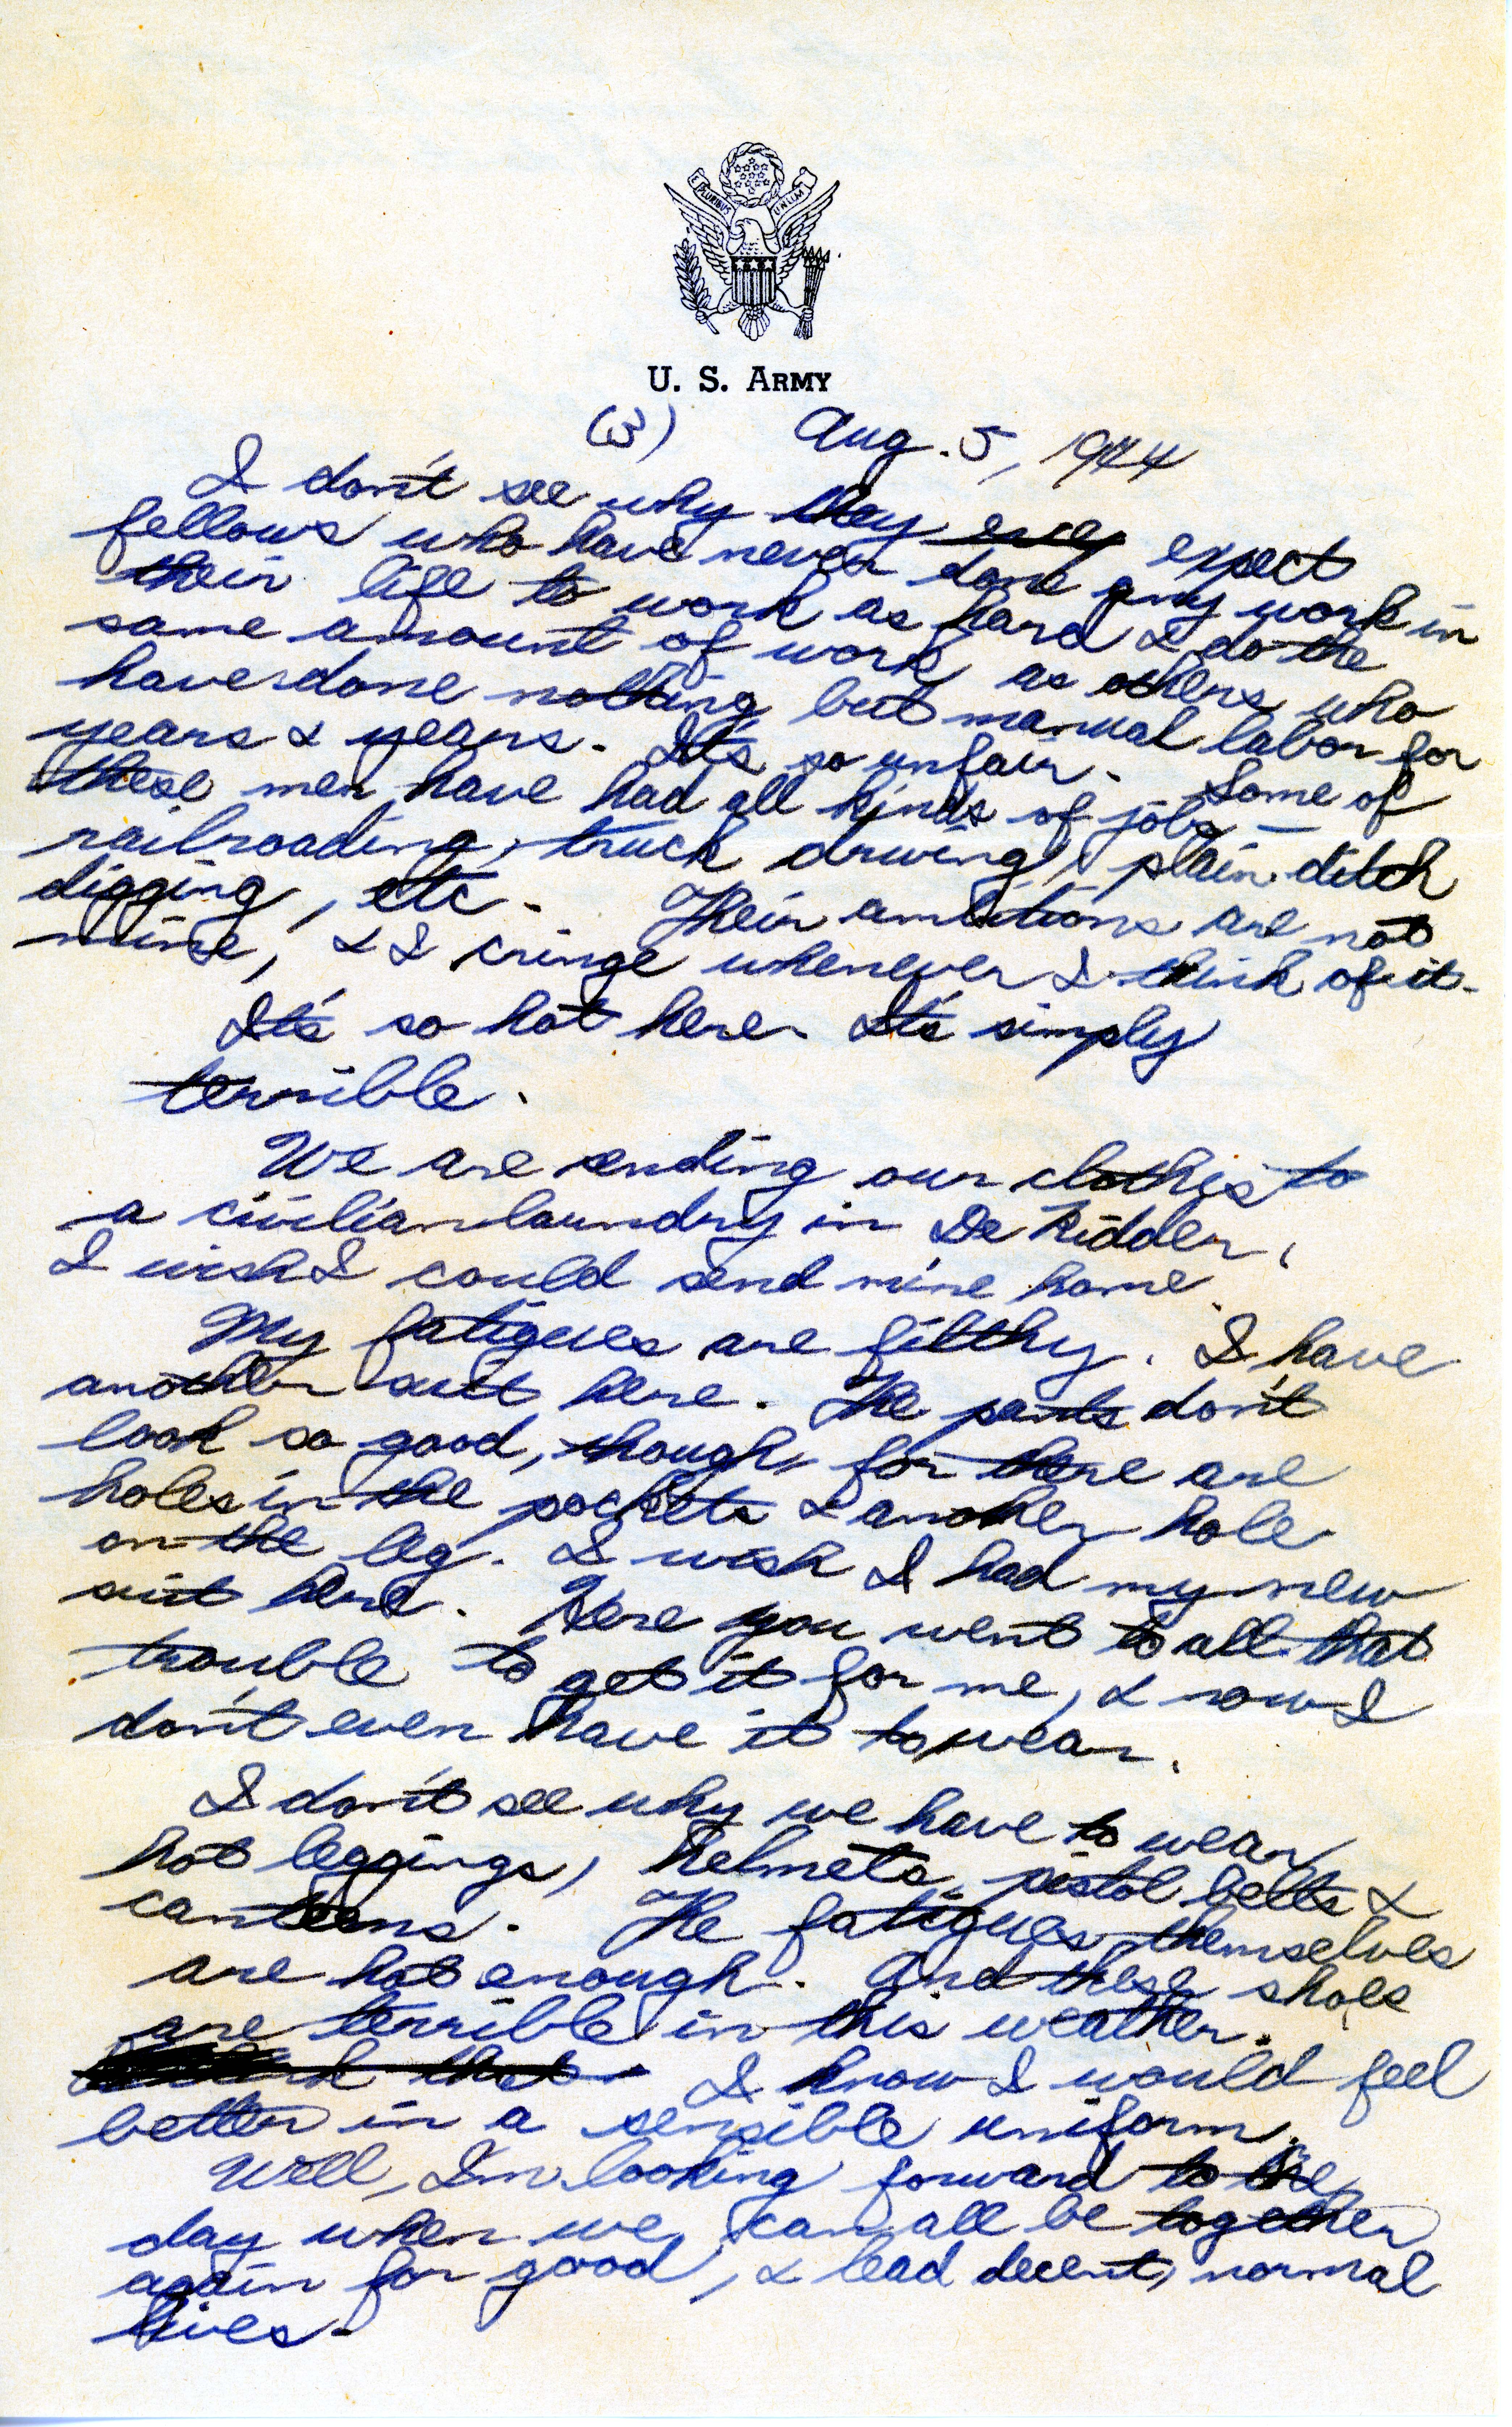 E PLURIBUS UNUM
U. S. ARMY
(3) Aug. 5, 1944
I don't see why they expect
fellows who have never done any work in
their life to work as hard & do the
same amount of work as others who
have done nothing but manual labor for
years & years. It's so unfair. Some of
these men have had all kinds of jobs —
railroading, truck driving, plain ditch
digging, etc. Their ambitions are not
mine, & I cringe whenever I think of it.
It's so hot here. It's simply
terrible.
We are sending our clothes to
a civilian laundry in De Ridder.
I wish I could send mine home.
My fatigues are filthy. I have
another suit here. The pants don't
look so good, though, for there are
holes in the pockets & another hole
on the leg. I wish I had my new
suit here. Here you went to all that
trouble to get it for me, & now I
don't even have it to wear.
I don't see why we have to wear
hot leggings, helmets, pistol belts &
canteens. The fatigues themselves
are hot enough. And these shoes
are terrible in this weather.
I know I would feel
better in a sensible uniform.
Well, I'm looking forward to the
day when we can all be together
again for good, & lead decent, normal
lives.